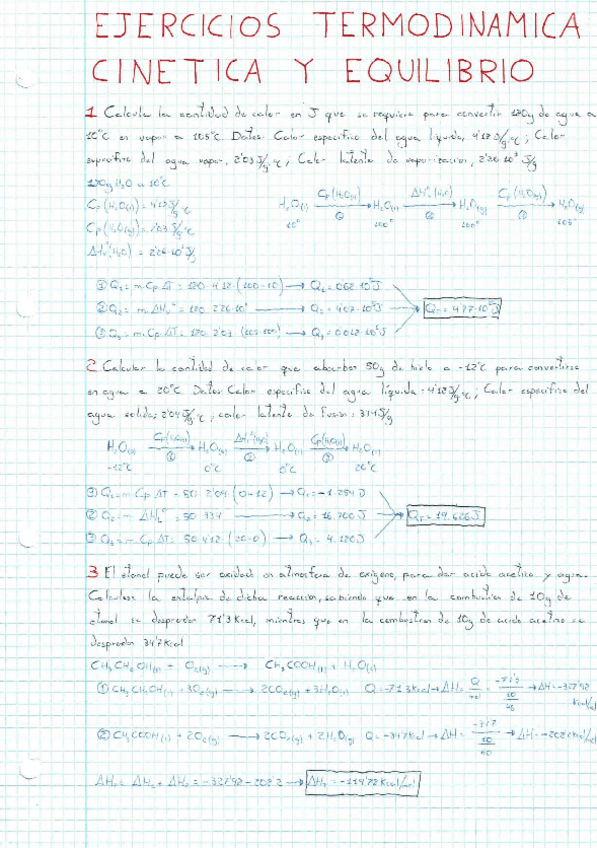 EJERCICIOS TERMODINAMICA
CINETICA Y EQUILIBRIO
1 Calcular la cantidad de calor en J que se requiere para convertir 180g de agua a
10°C en vapor a 105°C. Datos: Calor especifico del agua líquida, 4'18 J/g·ºC; Calor
especifico del agua vapor, 2'03 J/g·ºC; Calor latente de vaporizacion, 2'26·10³ J/g
180g H₂O a 10°C
Cp(H₂O(l)) = 4'18 J/g·ºC
Cp(H₂O(g)) = 2'03 J/g·ºC
ΔHv°(H₂O) = 2'26·10³ J/g
H₂O(l) Cp(H₂O(l)) ① H₂O(l) ΔHv°(H₂O) ② H₂O(g) Cp(H₂O(g)) ③ H₂O(g)
10° 100° 100° 105°
① Q₁ = m·Cp ΔT = 180·4'18·(100-10) → Q₁ =
② Q₂ = m·ΔHv° = 180·2'26·10³ → Q₂ = 4'07·10⁵J
③ Q₃ = m·Cp ΔT = 180·2'03·(105-100) → Q₃ =
QT = 4'77·10⁵J
2 Calcular la cantidad de calor que absorben 50g de hielo a -12°C para convertirse
en agua a 20°C. Datos: Calor especifico del agua líquida = 4'18 J/g·ºC; Calor especifico del
agua solida: 2'04 J/g·ºC; calor latente de fusion: 334 J/g
H₂O(s) Cp(H₂O(s)) ① H₂O(s) ② H₂O(l) Cp(H₂O(l)) ③ H₂O(l)
-12°C 0°C 0°C 20°C
① Q₁ = m·Cp ΔT = 50·2'04·(0-12) → Q₁ = -1.254J
② Q₂ = m· = 50·334 → Q₂ = 16.700J
③ Q₃ = m·Cp ΔT = 50·4'12·(20-0) → Q₃ = 4.180J
QT = 19.626J
3 El etanol puede ser oxidado en atmosfera de oxigeno, para dar acido acetico y agua.
Calculese la entalpia de dicha reaccion, sabiendo que en la combustion de 10g de
etanol se desprenden 71'3 Kcal, mientras que en la combustion de 10g de acido acetico se
desprenden 34'7 Kcal
CH₃CH₂OH(l) + O₂(g) → CH₃COOH(l) + H₂O(l)
① CH₃CH₂OH(l) + 3O₂(g) → 2CO₂(g) + 3H₂O(l) Q = -71'3Kcal → ΔH₁ = = → ΔH = -327'98 Kcal/mol
② CH₃COOH(l) + 2O₂(g) → 2CO₂(g) + 2H₂O(g) Q = -34'7Kcal → ΔH = → ΔH =
ΔHR = ΔH₁ + ΔH₂ = -327'98 - 208'2 → ΔHR = -119'78 Kcal/mol